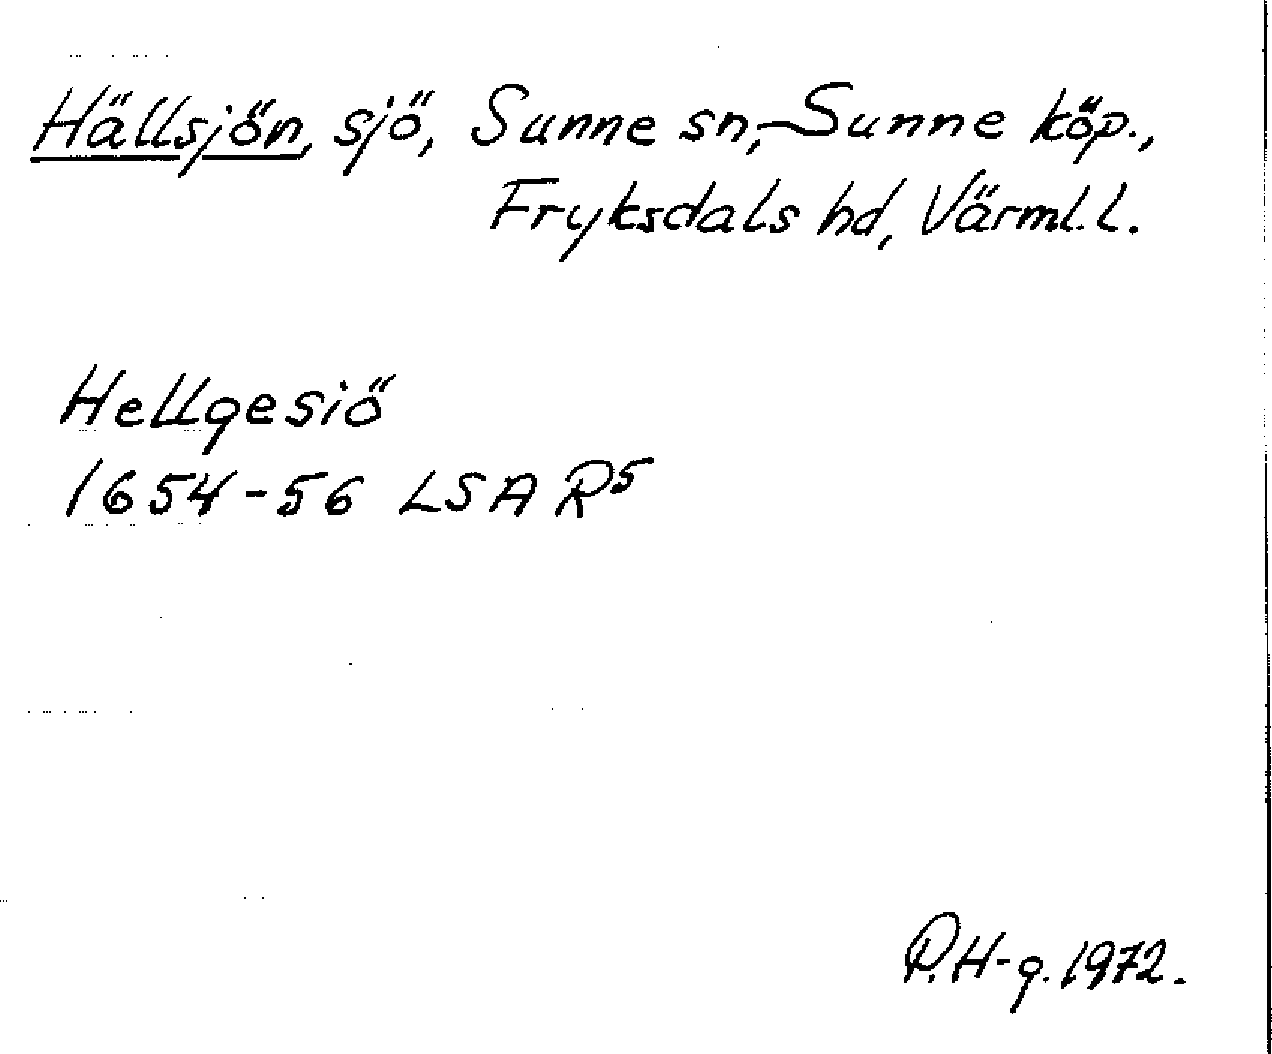 Hällsjön, sjö, Sunne sn,-Sunne köp.,
Fryksdals hd, Värml.l.
Hellgesiö
1654-56 LSA R5
P.H-g.1972.